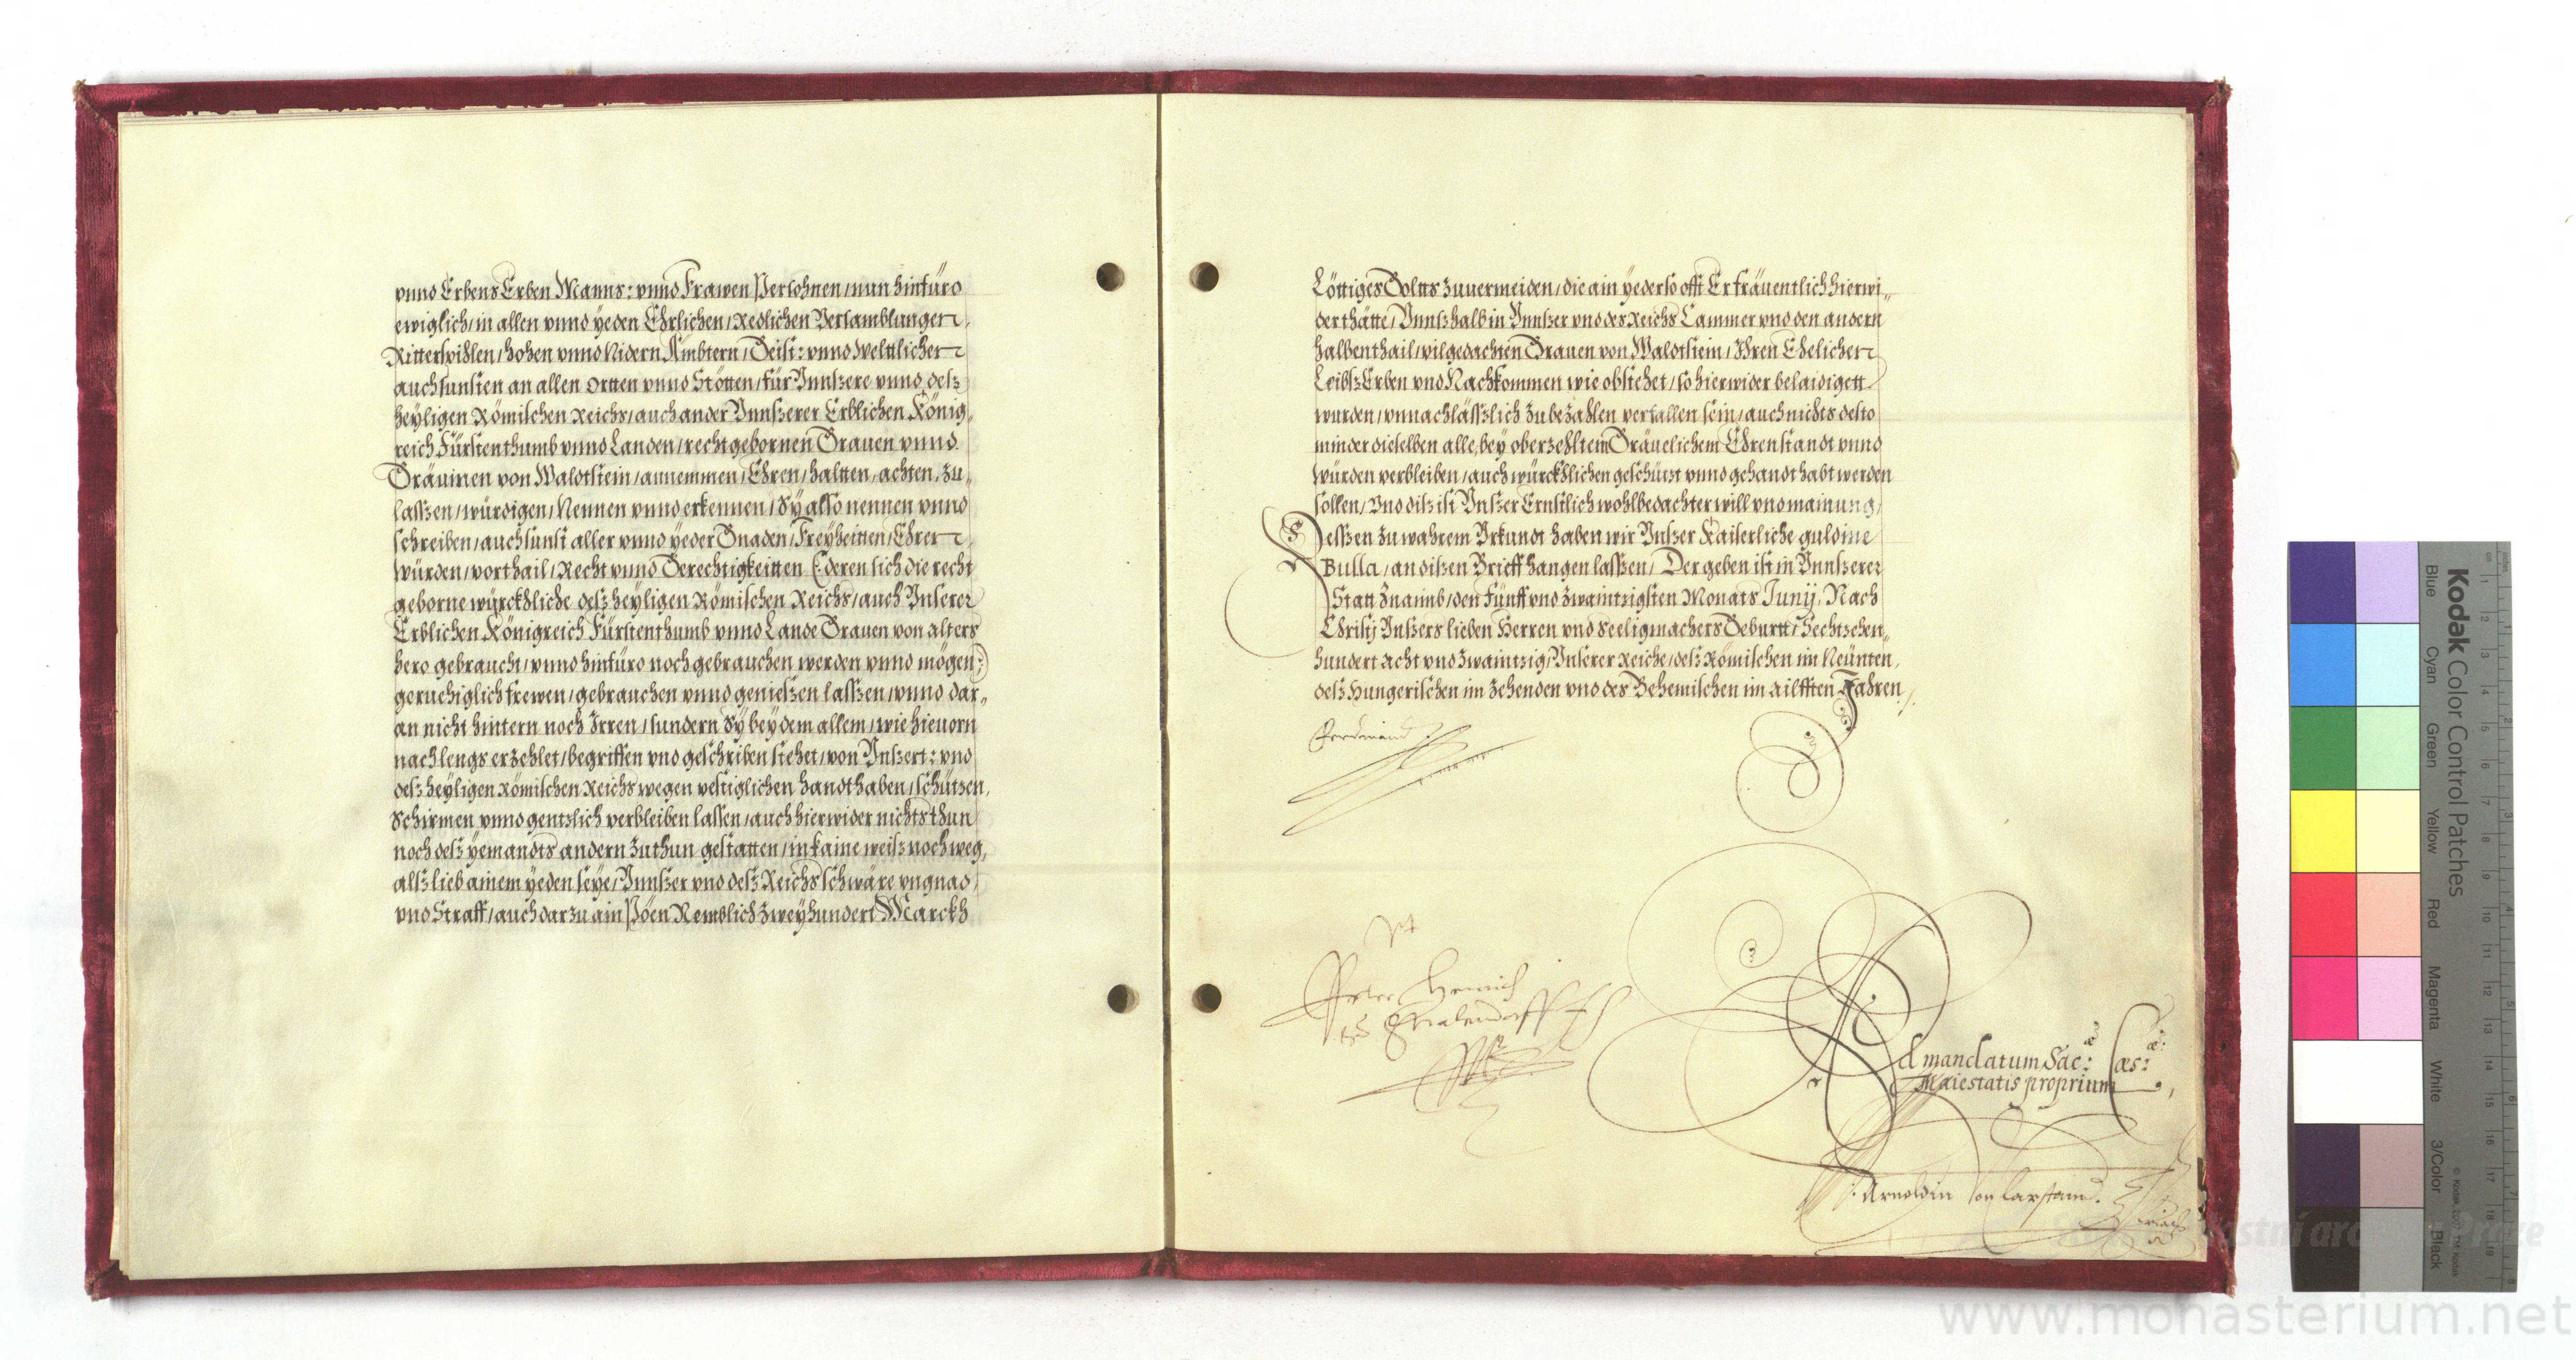 vnnd Erbens Erben Manns: vnnd Frawen Persohnen / nun hinfüro
ewiglich / in allen vnnd yeden Ehrlichen / Redlichen Versamblungen,
Ritterspihlen / hohen vnnd Nidern Ämbtern / Geist: vnnd Weltlichen
auch sunsten an allen Ortten vnnd Stötten / für Vnnszere vnnd desz
heyligen Römischen Reichs / auch ander Vnnszerer Erblichen König„
reich Fürstenthumb vnnd Landen / recht gebornen Grauen vnnd
Gräuinen von Waldtstein / annemmen / Ehren / haltten / achten, zu„
laszen / würdigen / Nennen vnnd erkennen / Sy also nennen vnnd
schreiben / auch sunst aller vnnd yeder Gnaden / Freyheitten / Ehren
würden / vorthail / Recht vnnd Gerechtigkeitten (deren sich die recht
geborne würckhliche desz heyligen Römischen Reichs / auch Vnserer
Erblichen Königreich Fürstenthumb vnnd Lande Grauen von alters
hero gebraucht / vnnd hinfüro noch gebrauchen werden vnnd mögen:)
geruehiglich frewen / gebrauchen vnnd genieszen laszen / vnnd dar„
an nicht hintern noch Irren / sundern Sy bey dem allem / wie hieuorn
nach lengs erzehlet / begriffen vnd geschriben stehet / von Vnszert: vnd
desz heyligen Römischen Reichs wegen vestiglichen handthaben / schützen,
Schirmen vnnd gentzlich verbleiben lassen / auch hierwider nichts thun
noch desz yemandts andern zuthun gestatten / in kaine weisz noch weg,
alsz lieb ainem yeden seye / Vnnszer vnd desz Reichs schwäre vngnad
vnd Straff / auch darzu ain Pöen Nemblich zweyhundert Marckh
Löttiges Goltts zuuermeiden / die ain yeder so offt Er fräuentlich hierwi„
der thätte / Vnnsz halb in Vnnszer vnd des Reichs Cammer vnd den andern
halben thail / vilgedachten Grauen von Waldtstein / Ihren Ehelichen
Leibsz Erben vnd Nachkommen wie obstehet / so hierwider belaidigett
wurden / vnnachläszlich zubezahlen verfallen sein / auch nichts desto
minder dieselben alle, bey oberzehltem Gräuelichem Ehrenstandt vnnd
würden verbleiben / auch würckhlichen geschützt vnnd gehandthabt werden
sollen / Vnd disz ist Vnszer Ernstlich wohlbedachter will vnd mainung /
Deszen zu wahrem Vrkundt haben wir Vnszer Kaiserliche guldine
Bulla / an diszen Brieff hangen laszen / Der geben ist in Vnnszerer
Statt Znaimb / den Fünff vnd zwaintzigsten Monats Junij, Nach
Christj Vnszers lieben Herren vnd Seeligmachers Geburtt / Sechtzehen„
hundert Acht vnd zwaintzig / Vnserer Reiche / desz Römischen im Neünten,
desz Hungerischen im zehenden vnd des Behemischen im ailfften Jahren /.
Ferdinand
Vt
Peter Heinrich
Ad mandatum Sac: æ Cæs: æ:
Maiestatis proprium
Arnoldin von Clarstain
Kodak Color Control Patches
Blue Cyan Green Yellow Red Magenta White 3/Color Black
www.monasterium.net